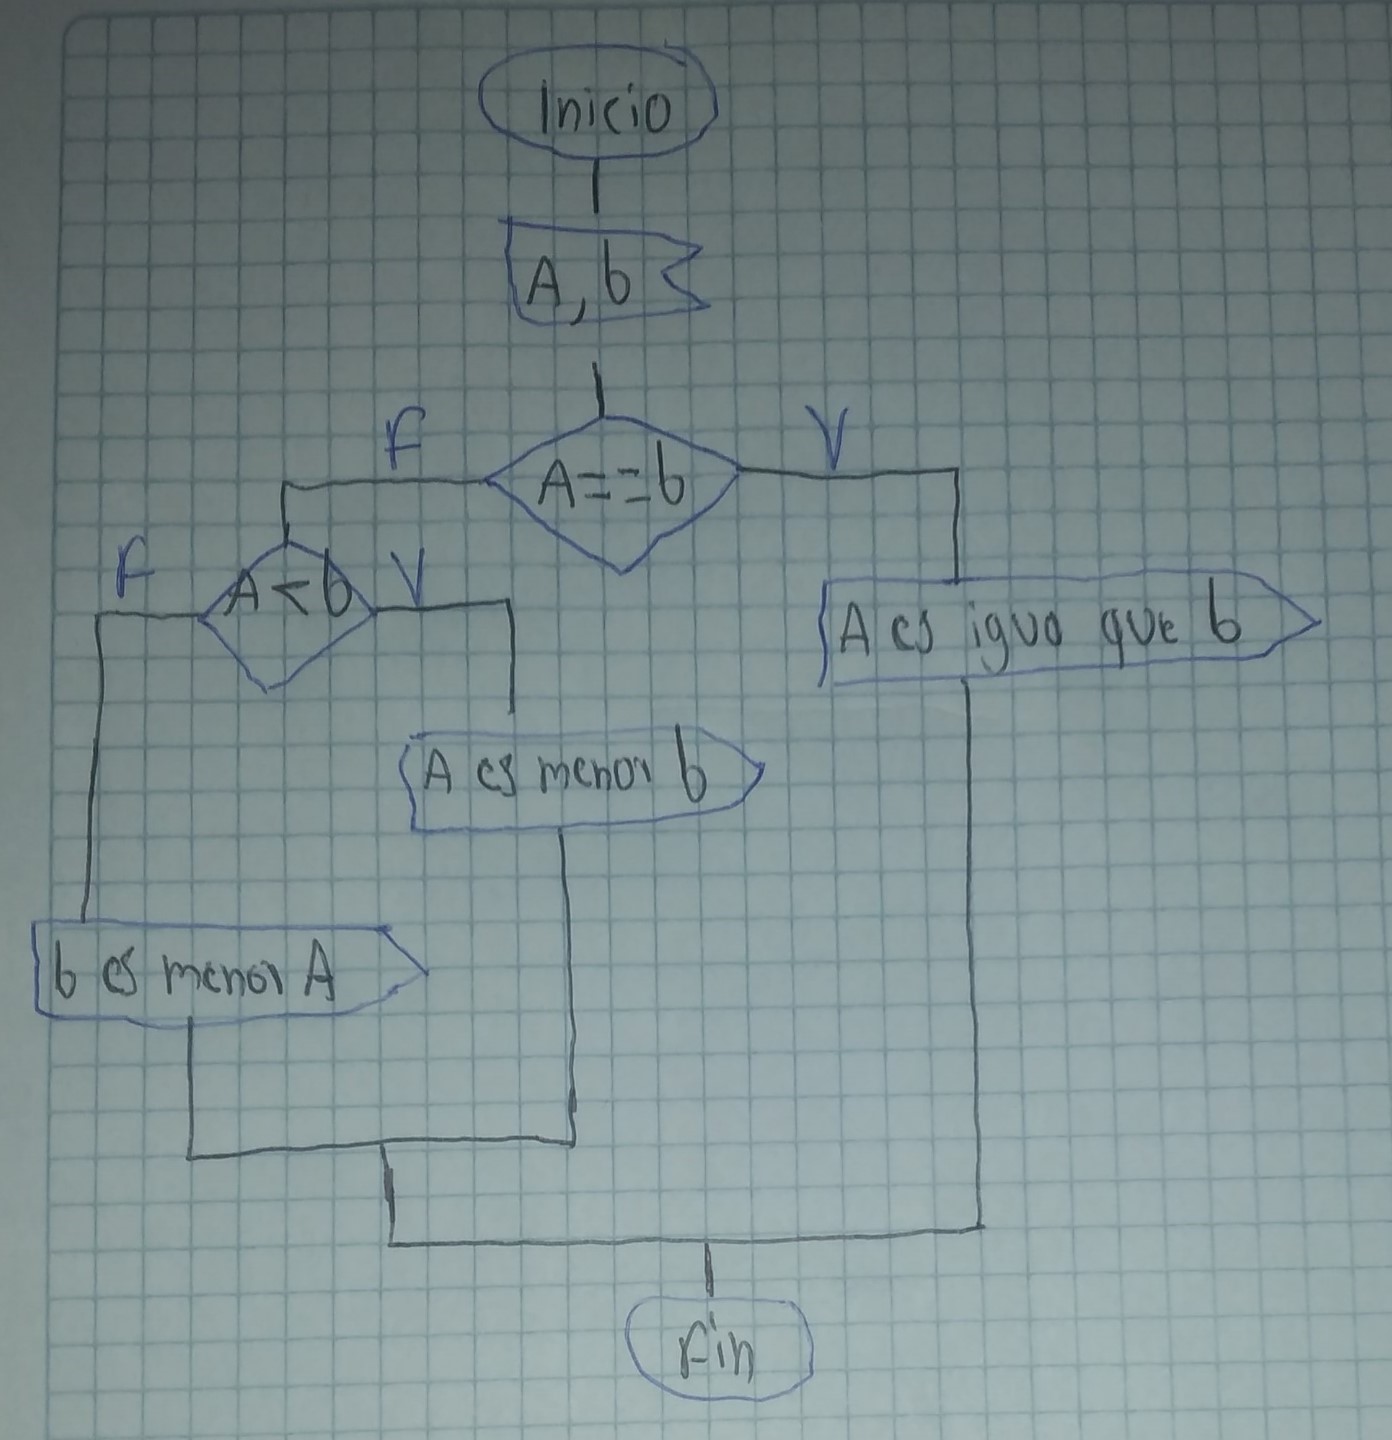 Inicio
A, b
F
V
A==b
F
A < b
V
A es igua que b
A es menor b
b es menor A
Fin